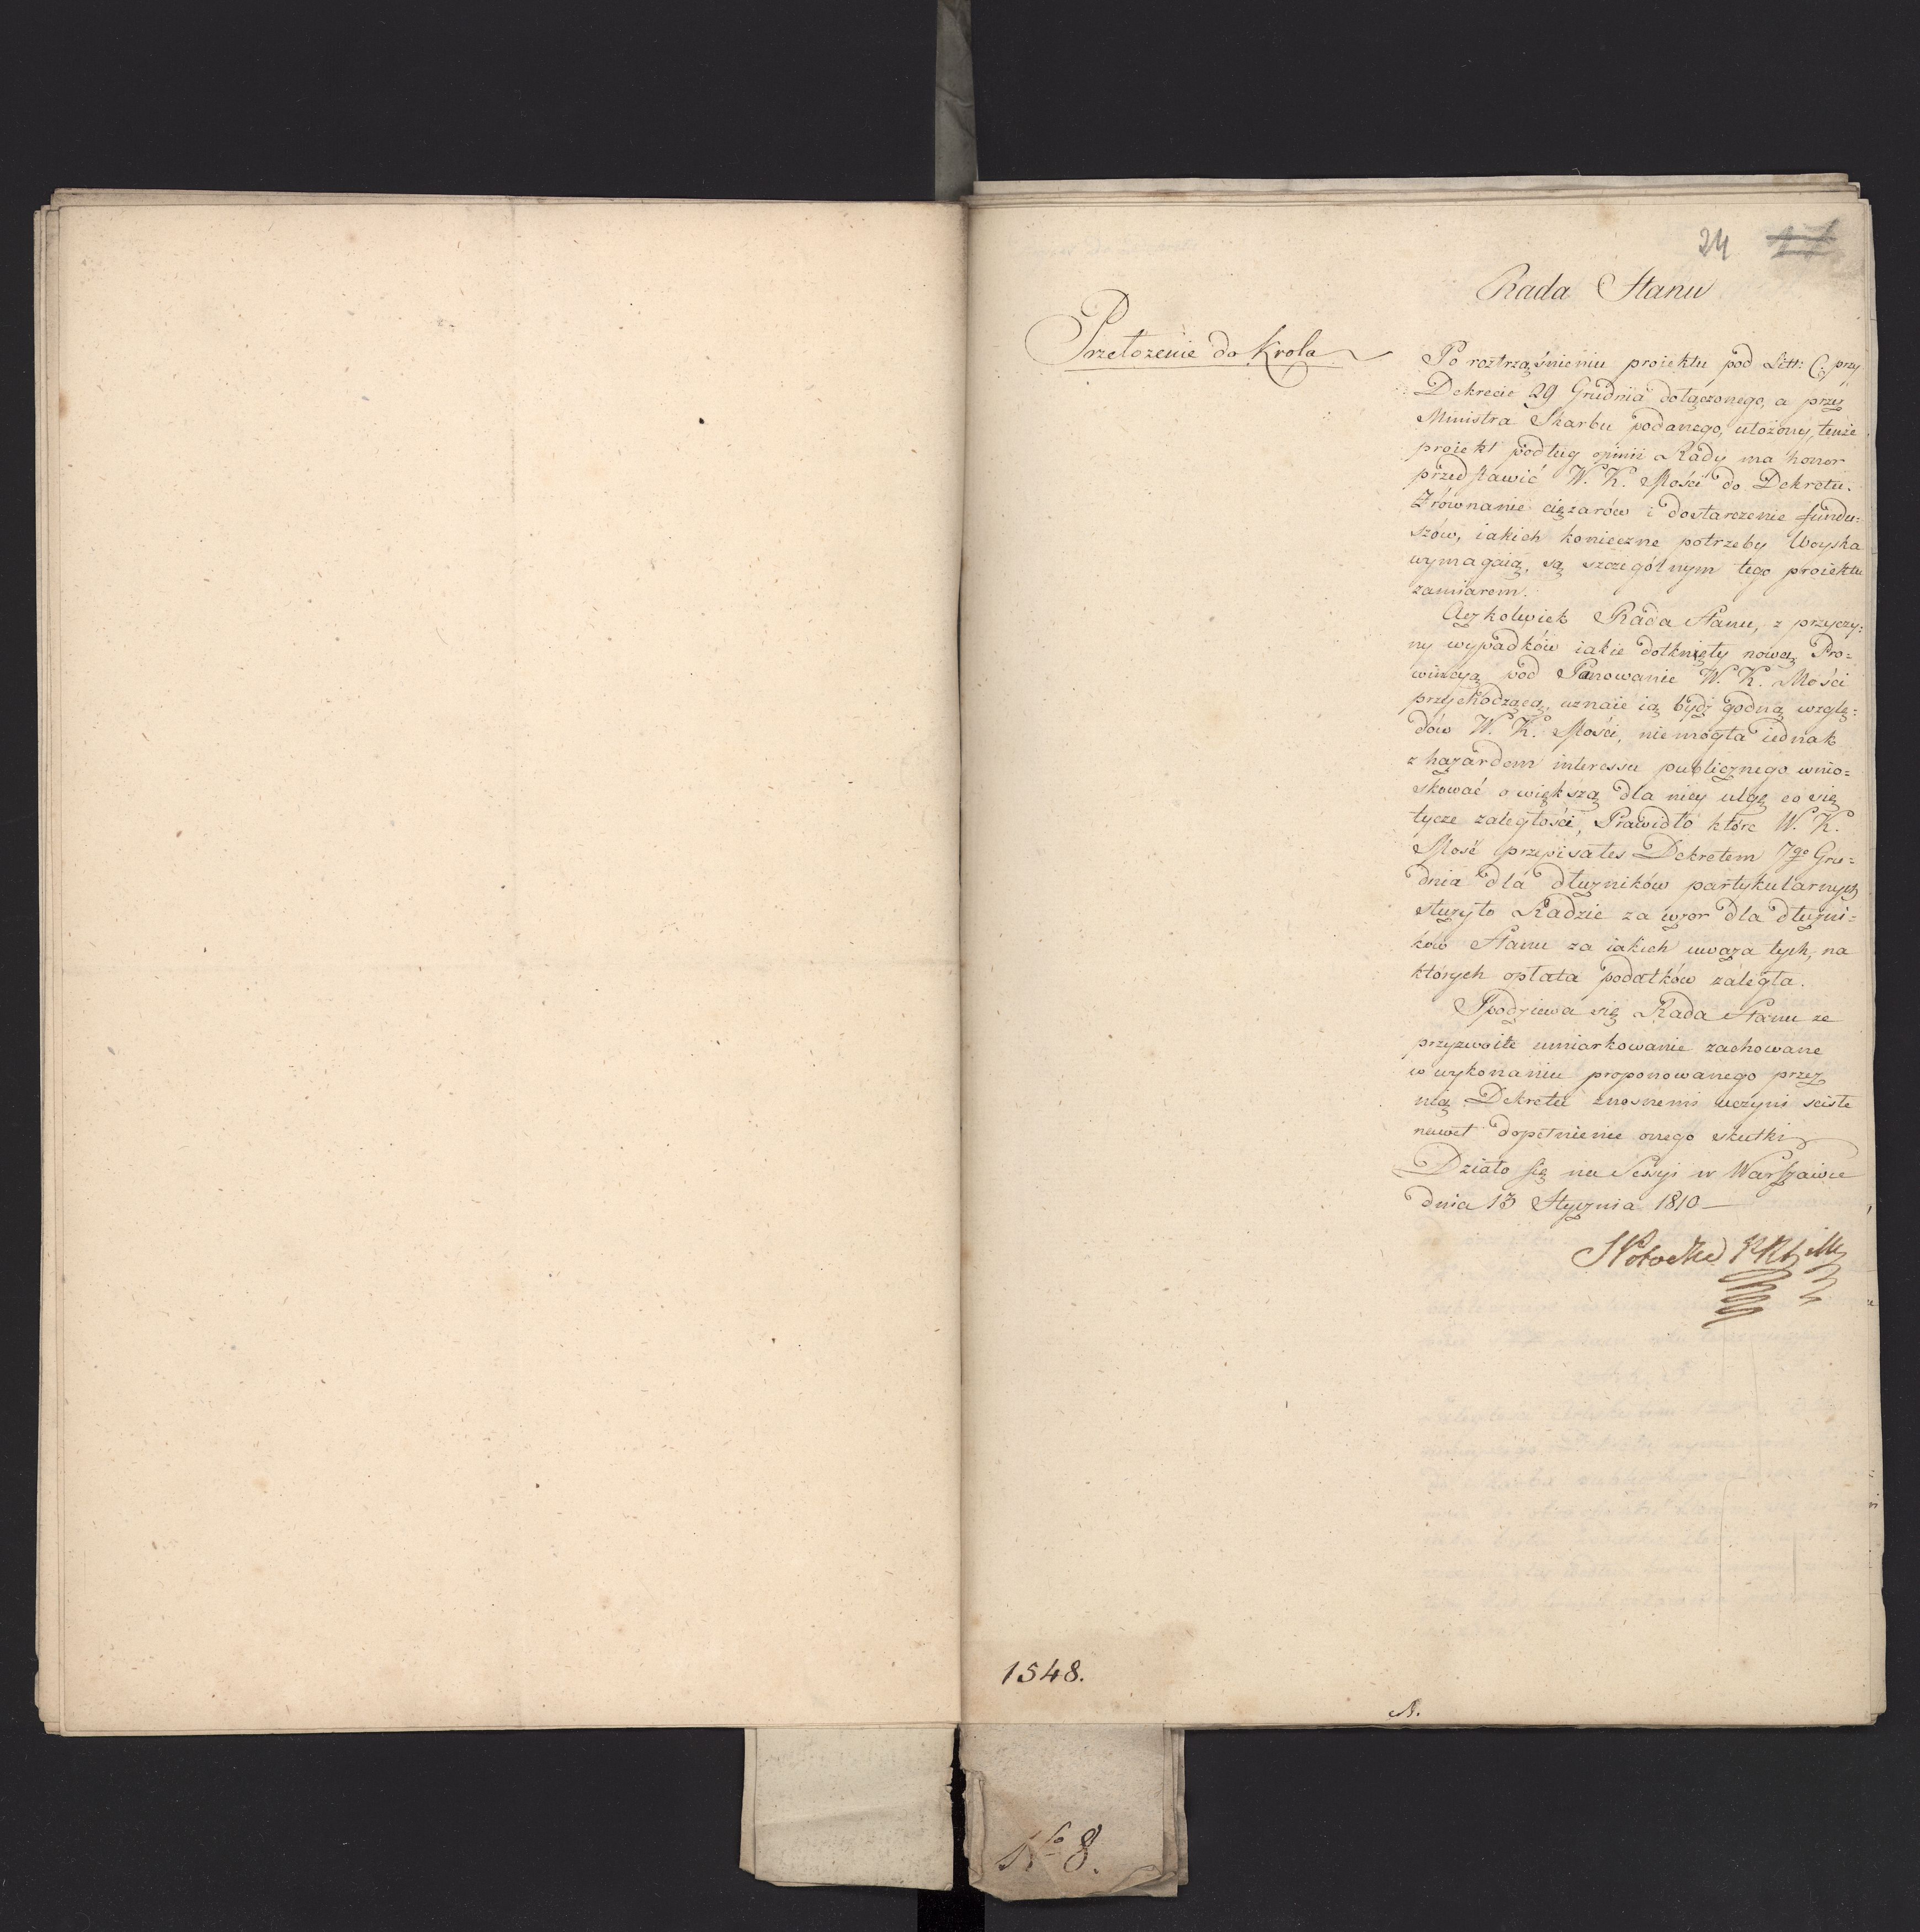 24
Rada Stanu
Przełozenie do Krola
Po roztrząśnieniu proiektu pod Litt: C, przy
Dekrecie 29 Grudnia dołączonego, a przy
Ministra Skarbu podanego, ułożony, tenże
proiekt podług opinii Rady ma honor
przedstawić W. K. Mości do Dekretu.
Zrównanie ciężarów i dostarczenie fundu=
szów, iakich konieczne potrzeby Woyska
wymagaią, są szczególnym tego proiektu
zamiarem.
Aczkolwiek Rada Stanu, z przyczy=
ny wypadków iakie dotknięły nową Pro=
wincyą pod Panowanie W. K. Mości
przychodzącą, uznaie ią bydź godną wzglę=
dów W. K. Mości, niemogła iednak
z hazardem interessu publicznego wnio=
skować o większą dla niey ulgę co się
tycze zaległości, Prawidło które W. K.
Mość przepisałes Dekretem 7go Gru=
dnia dla dłużników partykularnych
służyło Radzie za wzor dla dłużni=
ków Stanu za iakich uwaza tych, na
których opłata podatków zaległa.
Spodziewa się Rada Stanu ze
przyzwoite umiarkowanie zachowane
w wykonaniu proponowanego przez
nią Dekretu znosnemi uczyni sciste
nawet dopełnienie onego skutki
Działo się na Sessyi w Warszawie
dnia 13 Stycznia 1810
S Potocki
1548.
N.
No 8.